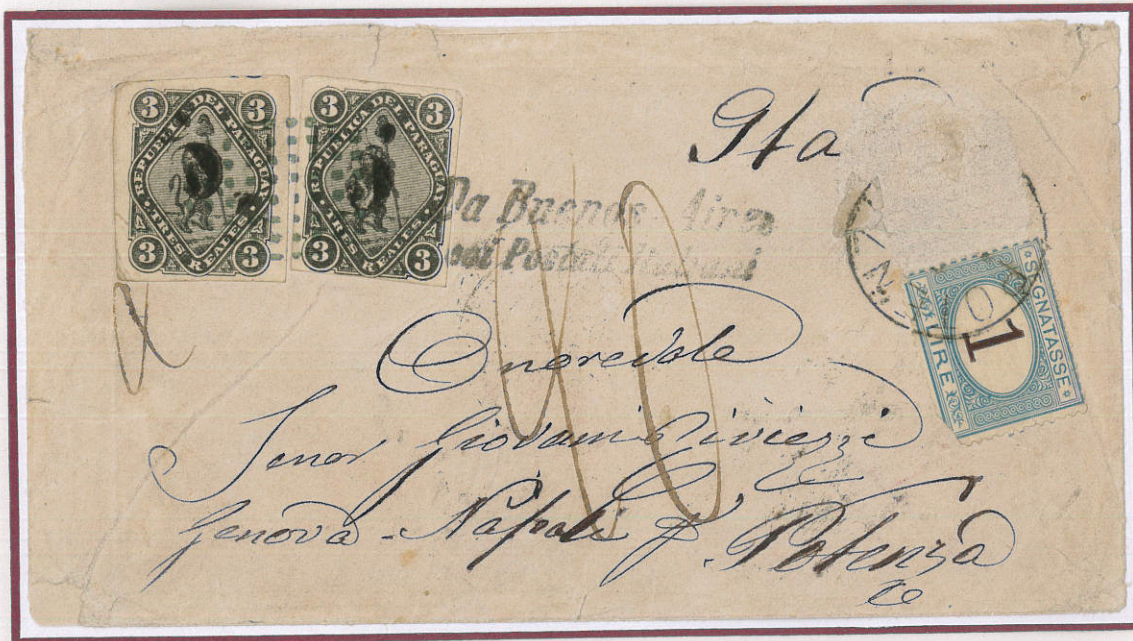 3 3
REPUBLICA DEL PARAGUAY
TRES REALES
3 3
3 3
REPUBLICA DEL PARAGUAY
TRES REALES
3 3
Da Buenos Aires
coi Postali Italiani
Ita
SEGNATASSE
1
LIRE
Onorevole
Senor Giovani
Genova - Napoli p. Potenza